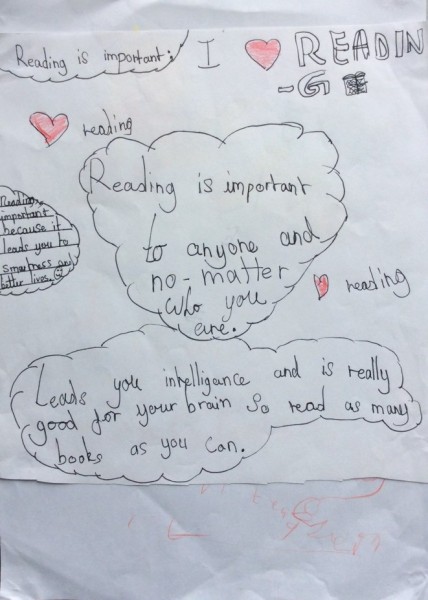 Reading is important:
I ❤ READIN
-G
❤ reading
Reading is important
to anyone and
no-matter
who you
are.
Reading
important
because it
leads you to
smartness and
better lives.
❤ reading
Leads you intelligance and is really
good for your brain so read as many
books as you can.